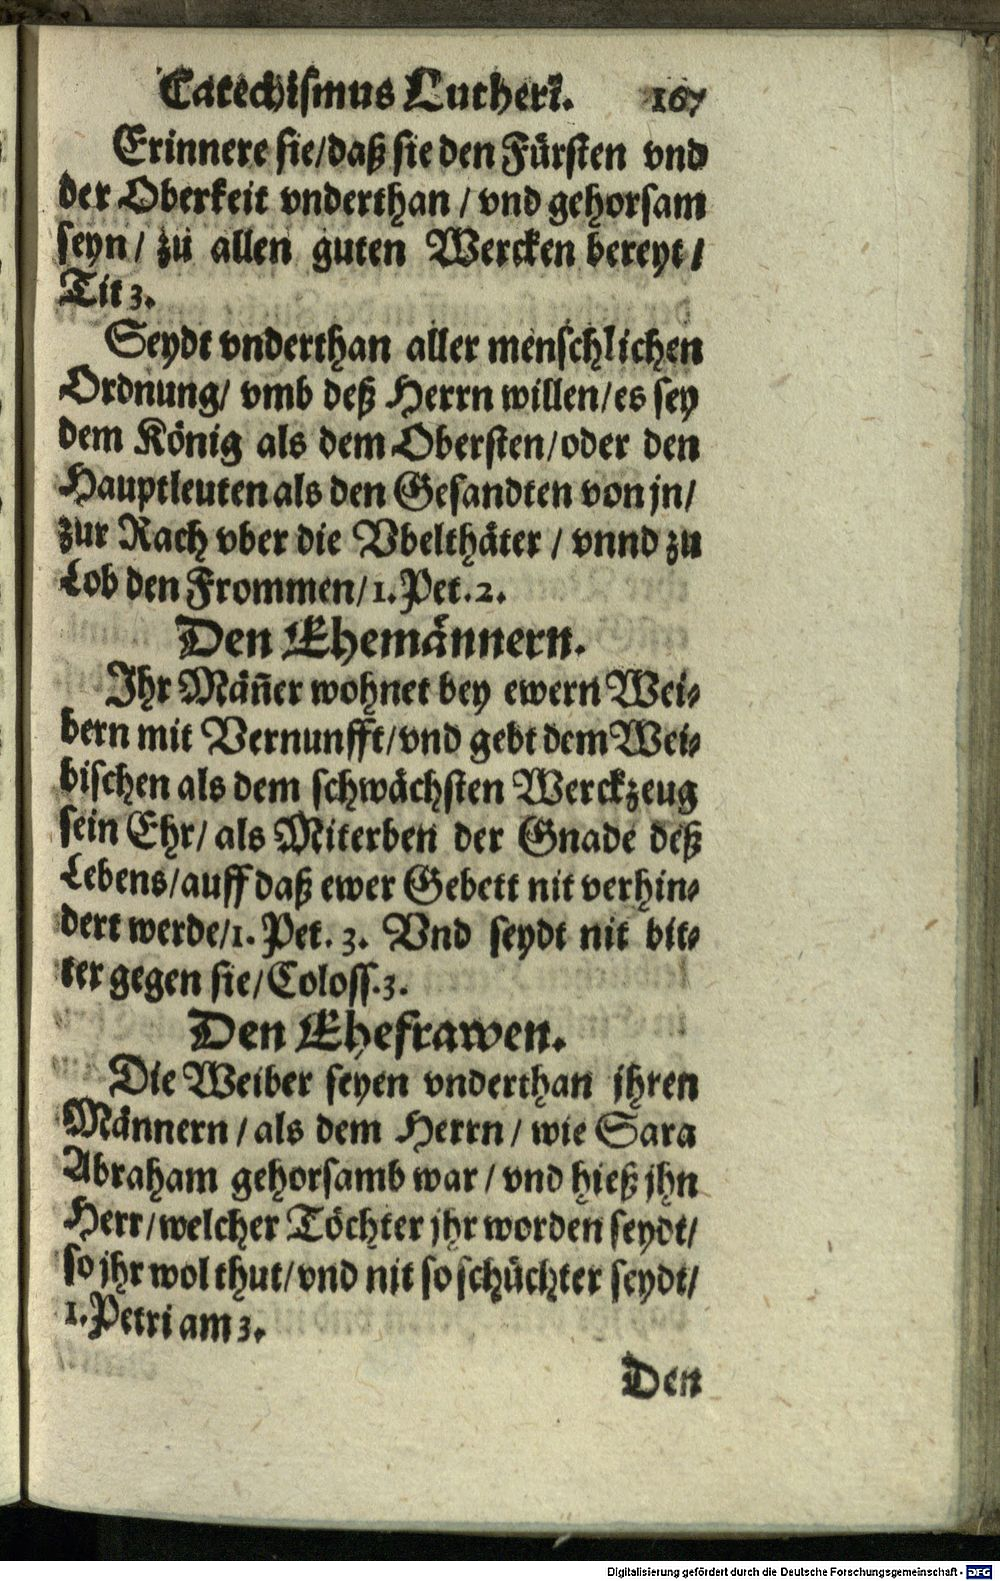 Catechismus Lutheri. 167
Erinnere sie/daß sie den Fürsten vnd
der Oberkeit vnderthan / vnd gehorsam
seyn / zu allen guten Wercken bereyt /
Tit 3.
Seydt vnderthan aller menschlichen
Ordnung/ vmb deß Herrn willen/es sey
dem König als dem Obersten/oder den
Hauptleuten als den Gesandten von jn/
zur Rach vber die Vbelthäter / vnnd zu
Lob den Frommen/1. Pet. 2.
Den Ehemännern.
Ihr Mäñer wohnet bey ewern Wei-
bern mit Vernunfft/vnd gebt dem Wei-
bischen als dem schwächsten Werckzeug
sein Ehr/ als Miterben der Gnade deß
Lebens/auff daß ewer Gebett nit verhin-
dert werde/1. Pet. 3. Vnd seydt nit bit-
ter gegen sie/Coloss. 3.
Den Ehefrawen.
Die Weiber seyen vnderthan jhren
Männern / als dem Herrn / wie Sara
Abraham gehorsamb war / vnd hieß jhn
Herr/welcher Töchter jhr worden seydt/
so jhr wol thut/vnd nit so schüchter seydt/
1. Petri am 3.
Den
Digitalisierung gefördert durch die Deutsche Forschungsgemeinschaft - DFG